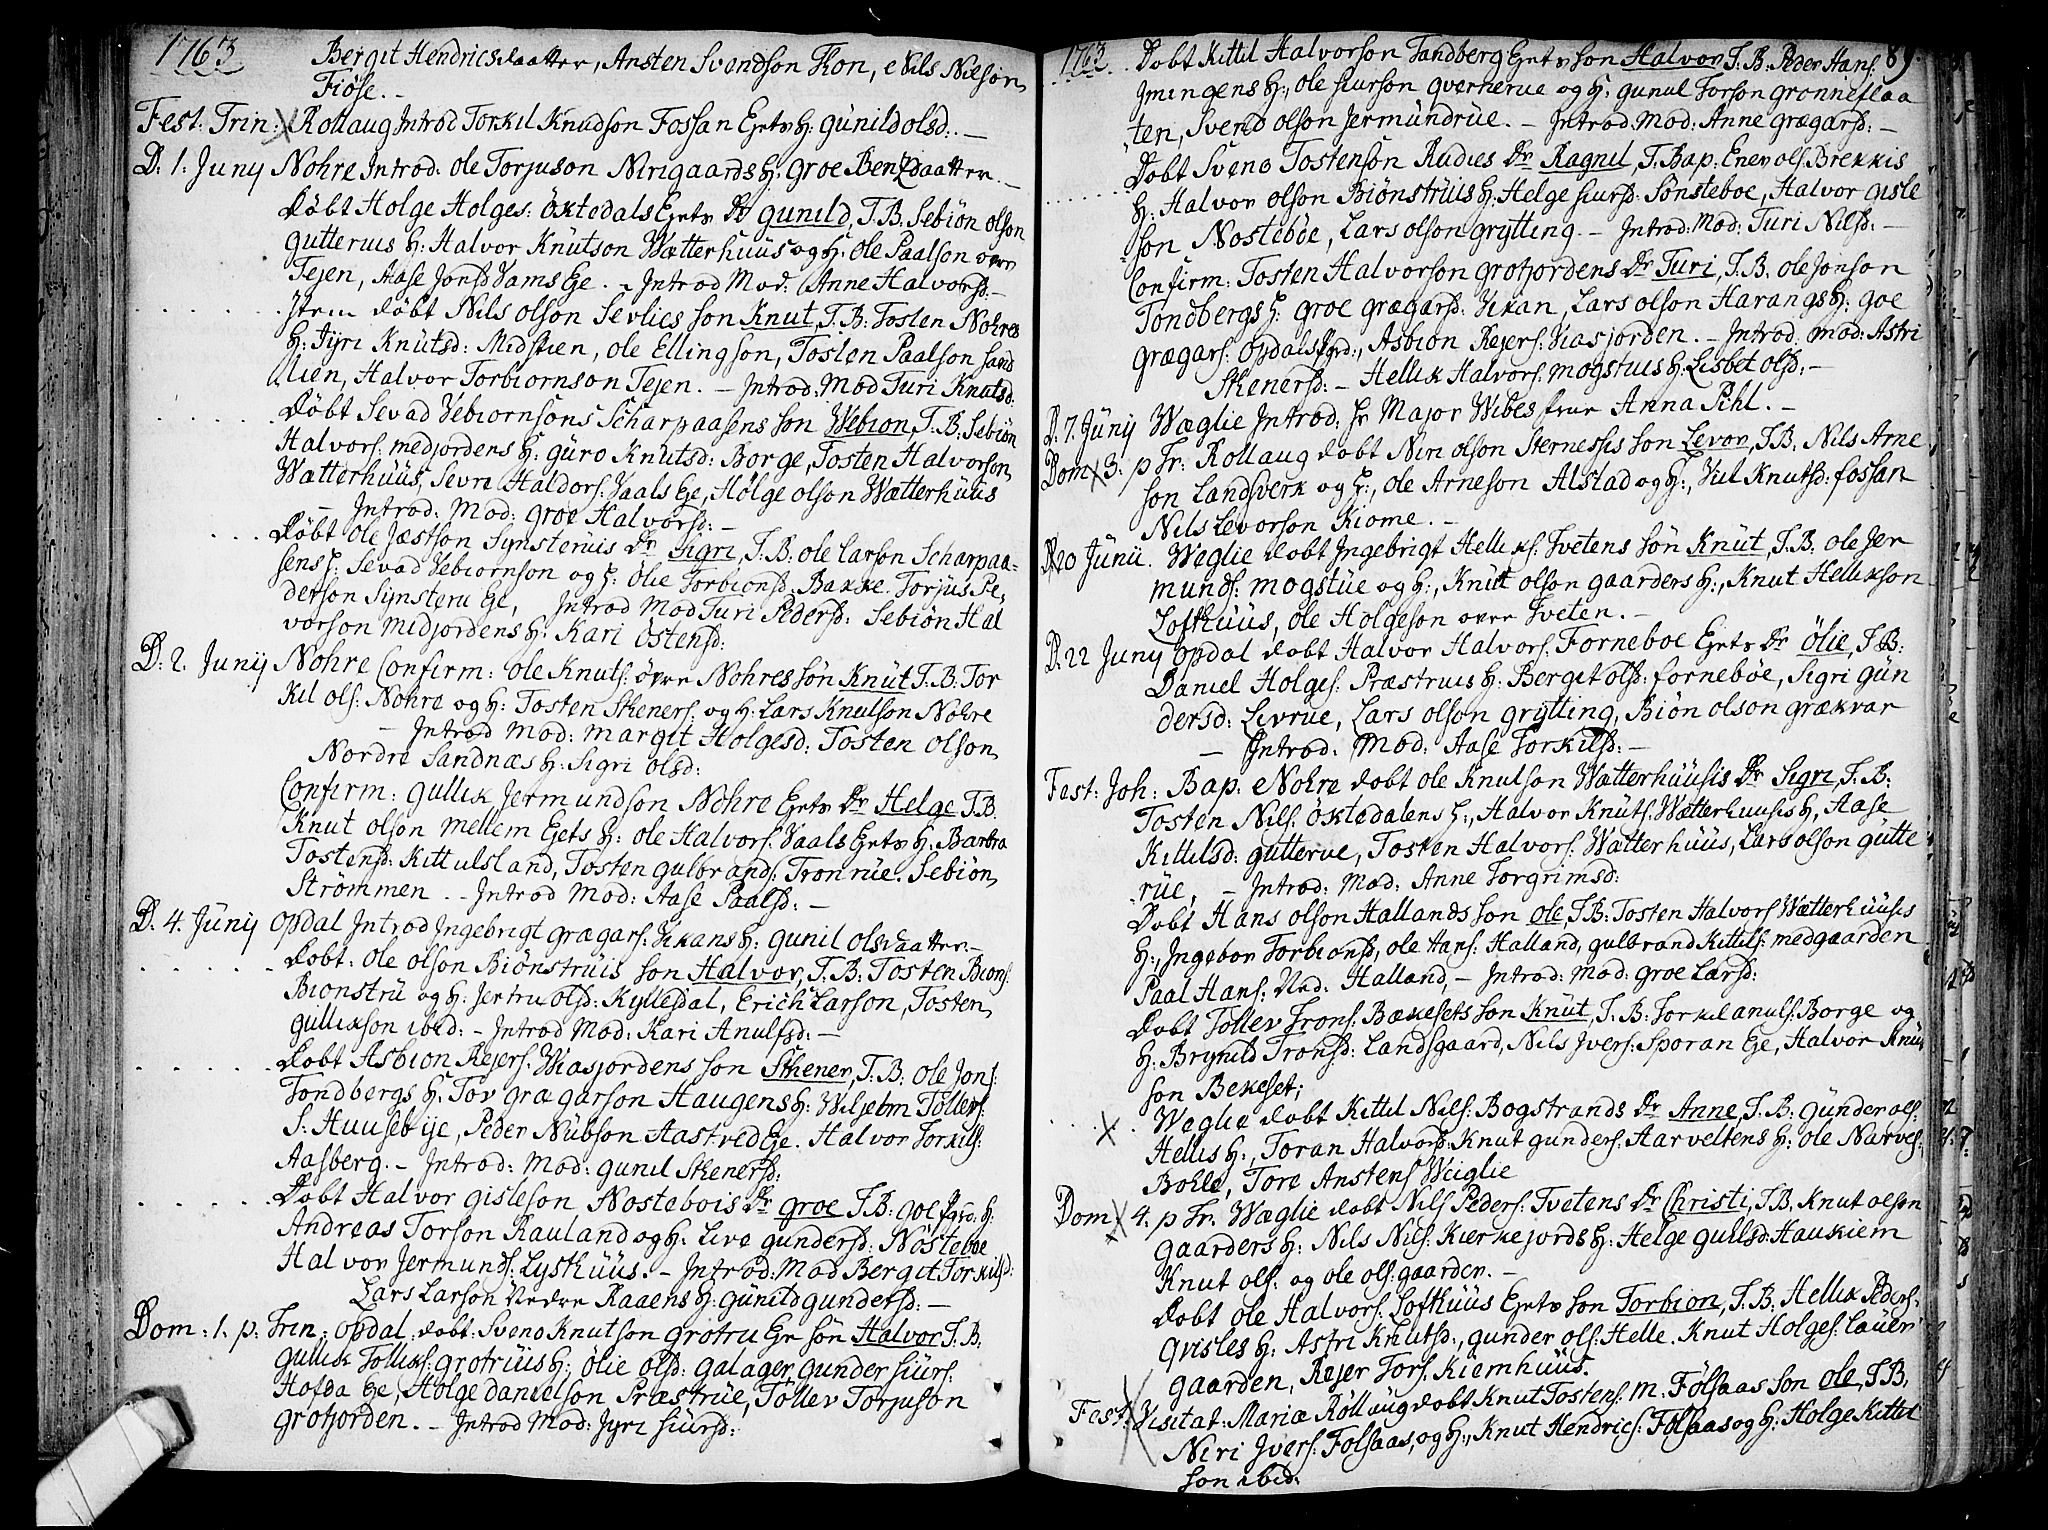 1763
Bergit Hendricsdaatter, Ansten Svendson Kon, Nils Nilson
Fiöse. -
Fest: Trin: Rollaug Introd Torkil Knudson Fossan Eyets H: Gunild olsd: -
D. 1. Junij Nohre Introd: ole Torjuson Nirigaards H: Groe Bentzdaatter -
Döbt Holge Holges: Öktedals Eyets Dr Gunild, T.B: Sebiön olson
Gutterues H: Halvor Knutson Wætterhuus og H: Ole Paalson over
Tejen, Aase Jonsd Vams Eje. - Introd Mod: Anne Halvorsd: -
Item döbt Nils olson Sevlies son Knut, T.B: Tosten Nohres
H: Jyri Knutsd: Midstien, ole Ellingson, Tosten Paalson Sand
Mien, Halvor Torbiornson Tejen. - Introd: Mod Turi Knutsd:
Döbt Sevad Vebiornsons Scharpaasens son Webion, T.B: Sebiön
Halvors: medjordens H: Guro Knutsd: Borge, Tosten Halvorson
Wætterhuus, Sevre Haldors: Vaals Eje, Holge olson Wætterhuus
- Introd: Mod: Groe Halvorsd: -
Döbt ole Jæstson Synsteruis Dr Sigri, T.B: ole Larson Scharpaa-
sens H: Sevad Vebiornson og H: Olie Torbionsd: Bakke. Torjus Pe,
derson Synsteru Eje, Introd Mod Turi Pedersd: Sebiön Hal
vorson Midjordens H: Kari Östensd:
D: 2. Junij Nohre Confirm: ole Knuts: övre Nohres sön Knüt T.B: Tor
kil ols: Nohre og H: Tosten Skeners: og H: Lars Knutson Nohre
- Introd Mod: Margit Holgesd: Tosten olson
Nordre Sandnæs H: Sigri olsd:
Confirm: Gullik Jermundson Nohre Eyets Dr Helge T.B.
Knut olson Mellem Eyets H: ole Halvors: Vaals Eyets H: Barbra
Tostensd: Kittulsland, Tosten Gulbrands: Tronrüe. Sebiön
Strömmen. - Introd Mod: Aase Paalsd: -
D. 4. Junij Opdal Introd Ingebrigt Grægars: Vikans H: Gunil olsdaatter -
Döbt: ole olson Biönstruis son Halvor, T.B: Tosten Bions:
Bionstrü og H: Jertru olsd: Kyllesdal, Erich Larson, Tosten
Gullikson ibid: - Introd Mod: Kari Anulfsd: -
Döbt Asbion Rejers: Wiasjordens son Skener, T.B: ole Jons:
Tondbergs H: Tor Grægarson Haugens H: Wiljelm Tollefs:
S: Huusebye, Peder Nubson Aastved Eje. Halvor Torkils:
Aasberg. - Introd: Mod: Gunil Skenersd:
Döbt Halvor Gisleson Nostebois Dr Groe T.B: Goe
Andreas Torson Rauland og H: Live Gundersd: Nösteböe
Halvor Jermunds: Lyshüus. - Introd: Mod Bergit Torkilsd:
Lars Larson Nedre Raaens H: Gunild Gundersd: -
Dom: 1. p: Trin: Opdal: döbt: Sveno Knutson Grotru Eje sön Halvor T.B:
Gullik Tolliks: Grotrüis H: Ölie olsd: Galager, Gunder Siurs:
Hofda Eje, Holge Danielson Præstrüe, Tollev Torjuson
Grotjorden. - Introd Mod: Jyri Siursd:
1763 89.
Döbt Kittil Halvorson Tandberg Eyets son Halvor T.B: Peder Hans:
Jmingens H:, ole Siurson Qvernerue og H: Gunul Torson Gronneflaa
ten, Svend olson Jermundrüe. - Introd: Mod: Anne Grægarsd: -
Döbt Sveno Tostenson Rudies Dr Ragnil, T. Bap: Enev ols: Brekkis
H: Halvor olson Biönstrüis H: Helge Siursd: Sönsteboe, Halvor Gisle
son Nosteböe, Lars olson Grytting - Introd: Mod: Turi Nilsd: -
Confirm: Tosten Halvorson Grotjordens Dr Turi, T.B. ole Jonson
Tondbergs H: Groe Grægarsd: Vikan, Lars olson Harangs H: Goe
Grægars: Opdals, Asbion Rejers: Viasjorden. - Introd: Mod: Astri
Skenersd: - Hellik Halvors: Mogstuis H: Lisbet olsd: -
D. 7. Junij Wæglie Introd: Hr Major Wibes frue Anna Pihl. -
Dom 3. p Tr: Rollaug döbt Niri olson Sternesis son Levor, T.B: Nils Arne
son Landsverk og H:, ole Arneson Alstad og H:, Vul Knutsd: Fossan
Nils Levorson Kiome. -
D 20 Junii. Weglie döbt Ingebrigt Helliks: Tvetens sön Knüt, T.B: ole Jer
munds: Mogstüe og H:, Knüt olson Gaarders H:, Knut Hellikson
Lofthüüs, ole Holgeson over Tveten. -
D. 22 Juny Opdal döbt Halvor Halvors: Forneboe Eyets Dr Ölie, T.B:
Daniel Holges: Præstruis H: Bergit olsd: Forneböe, Sigri Gün
dersd: Levrüe, Lars olson Grytting, Biön olson Grækvar
- Introd: Mod: Aase Torkilsd: -
Fest: Joh: Bap: Nohre döbt ole Knutson Wætterhüusis Dr Sigri, T.B:
Tosten Nils: Öktedalens H:, Halvor Knüts: Wætterhuusis H, Aase
Kittilsd: Gutterue, Tosten Halvors: Wætterhüus, Lars olson Gütte
rüe, - Introd: Mod: Anne Torgrimsd:
Döbt Hans olson Hallands son ole, T.B: Tosten Halvors: Wætterhüusis
H:, Ingebor Torbionsd, ole Hans: Halland, Gulbrand Kittils: Medgaarden
Paal Hans: Ned: Halland, - Introd: Mod: Groe Larsd:
Döbt Tollev Trons: Bækesets son Knüt, T.B: Torkil Anuls: Borge og
H: Brynild Tronsd: Landsgaard, Nils Jvers: Sporan Eje, Halvor Knüt
son Bekeset;
Weglie döbt Kittil Nils: Bogstrands Dr Anne, T.B: Günder ols:
Hellis H:, Toran Halvorsd: Knut Gunders: Aarveltens H: ole Narves:
Bohle, Tore Anstens: Weiglie
Dom 4. p Tr. Wæglie döbt Nils Peders: Tvetens Dr Christi, T.B. Knut olson
Gaarders H: Nils Nils: Kierkejords H: Helge Gullsd: Haukiem
Knut ols: og ole ols: Gaarden. -
Döbt ole Halvors: Lofthüüs Eyets son Torbion, T.B: Hellik Peders:
Qvisles H: Astri Knutsd:, Gunder ols: Helle. Knut Holges: Lauer
gaarden, Rejer Tors: Kiemhüus.
Fest: Visitat: Mariæ Rollaug döbt Knut Tostens: M. Fölsaas son ole, T.B,
Neri Jvers: Folsaas, og H:, Knut Hendrics: Folsaas og H: Holge Kittel
son ibid: